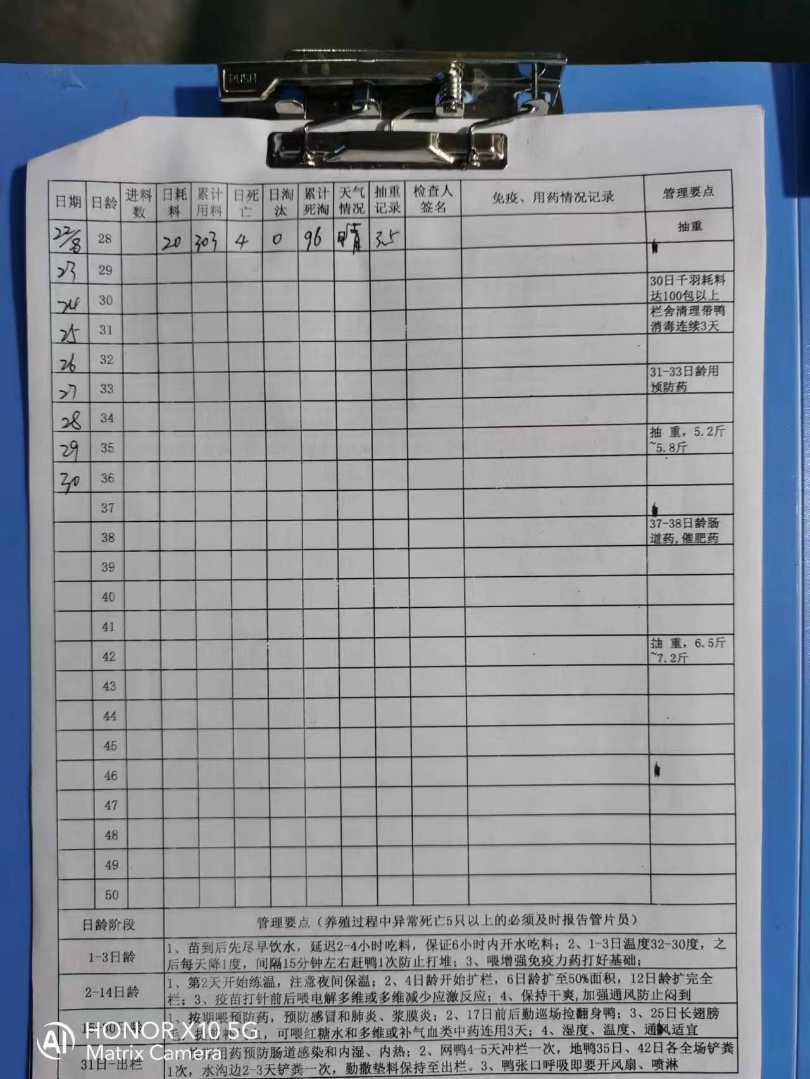 PUSH
日期 日龄 进料数 日耗料 累计用料 日死亡 日淘汰 累计死淘 天气情况 抽重记录 检查人签名 免疫、用药情况记录 管理要点
22/8 28 20 303 4 0 96 晴 3.5 抽重
23 29
24 30 30日千羽耗料达100包以上
25 31 栏舍清理带鸭消毒连续3天
26 32
27 33 31-33日龄用预防药
28 34
29 35 抽 重，5.2斤~5.8斤
30 36
37
38 37-38日龄肠道药,催肥药
39
40
41
42 抽 重，6.5斤~7.2斤
43
44
45
46
47
48
49
50
日龄阶段 管理要点（养殖过程中异常死亡5只以上的必须及时报告管片员）
1-3日龄 1、苗到后先尽早饮水，延迟2-4小时吃料，保证6小时内开水吃料；2、1-3日温度32-30度，之
后每天降1度，间隔15分钟左右赶鸭1次防止打堆；3、喂增强免疫力药打好基础；
2-14日龄 1、第2天开始练温，注意夜间保温；2、4日龄开始扩栏，6日龄扩至50%面积，12日龄扩完全
栏；3、疫苗打针前后喂电解多维或多维减少应激反应；4、保持干爽,加强通风防止闷到
1、按期喂预防药，预防感冒和肺炎、浆膜炎；2、17日前后勤巡场捡翻身鸭；3、25日长翅膀
可喂红糖水和多维或补气血类中药连用3天；4、湿度、温度、通风适宜
31日-出栏 用药预防肠道感染和内湿、内热；2、网鸭4-5天冲栏一次，地鸭35日、42日各全场铲粪
1次，水沟边2-3天铲粪一次，勤撒垫料保持至出栏。3、鸭张口呼吸即要开风扇、喷淋
AI HONOR X10 5G
Matrix Camera